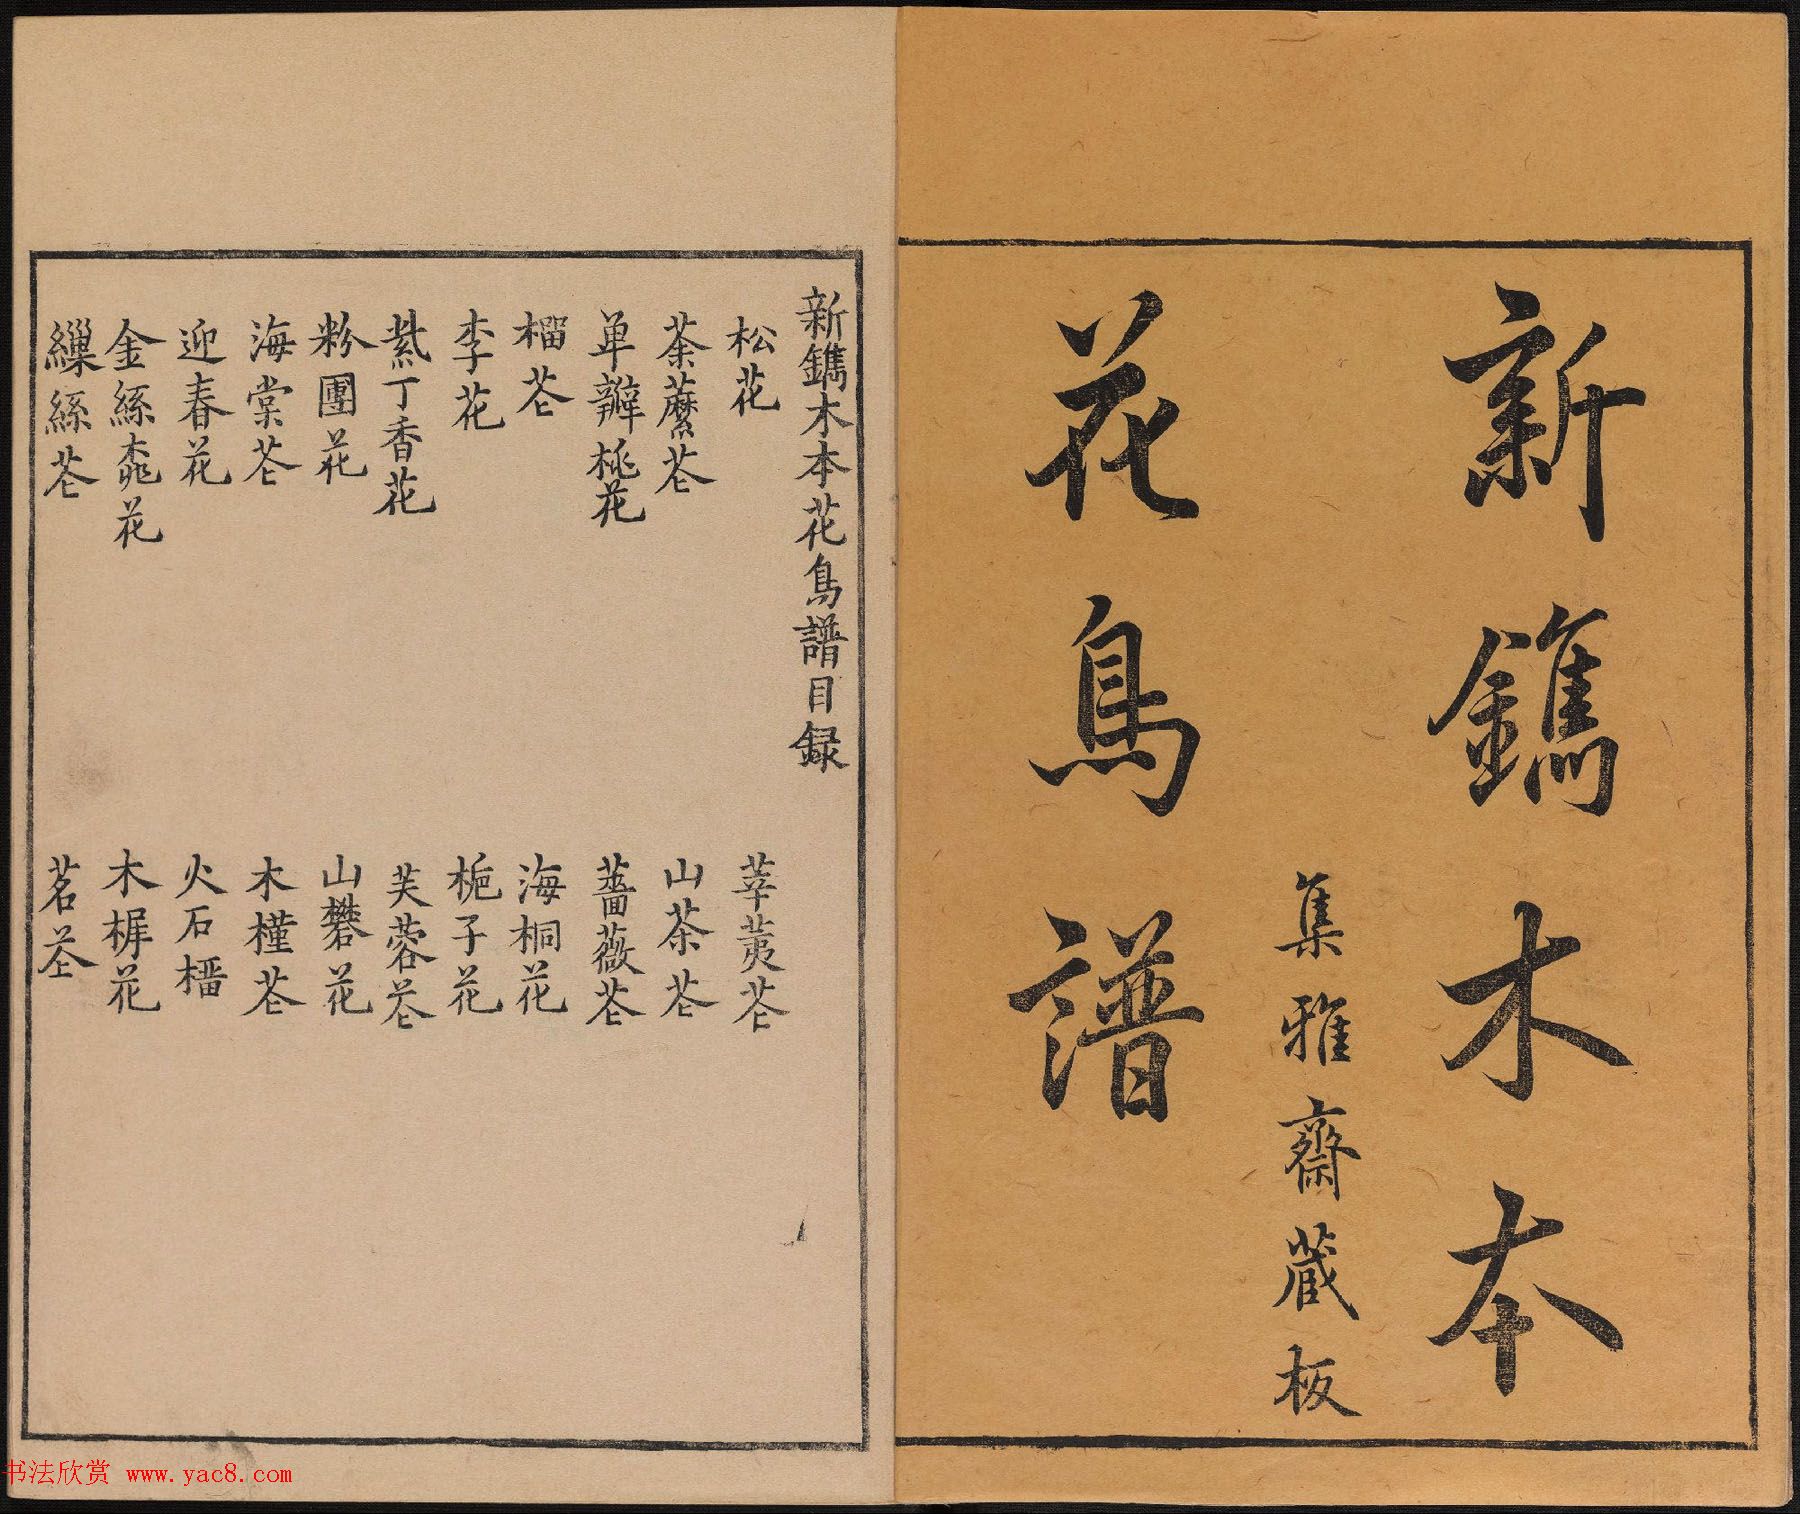 新鐫木本
花鳥譜
集雅齋藏板
新鐫木本花鳥譜目録
松花
莘荑花
荼蘼花
山茶花
单瓣桃花
薔薇花
榴花
海桐花
李花
梔子花
紫丁香花
芙蓉花
粉團花
山礬花
海棠花
木槿花
迎春花
火石榴
金絲桃花
木樨花
繅絲花
茗花
书法欣赏 www.yac8.com